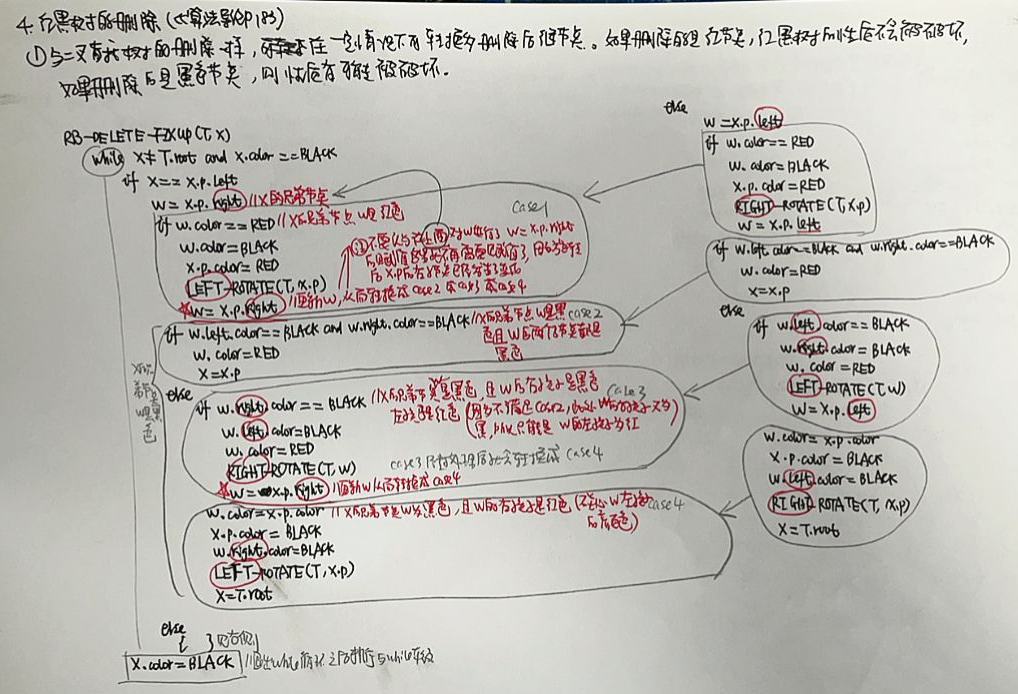 4. 红黑树的删除 (《算法导论P183)
①与二叉查找树的删除一样,
如果删除的是红节点,红黑树的性质不会被破坏,
如果删除的是黑色节点,则性质有可能被破坏.
RB-DELETE-FIXUP(T, X)
while X≠T.root and X.color==BLACK
if X==X.p.left
W=X.p.right //X的兄弟节点
if W.color==RED //X的兄弟节点W是红色
W.color=BLACK
X.p.color=RED
LEFT-ROTATE(T, X.p)
W=X.p.right //更新W,从而转换成case2 或case3 或case4
case1
if W.left.color==BLACK and W.right.color==BLACK //X的兄弟节点W是黑色且W的两个子节点都是黑色
case2
W.color=RED
X=X.p
else
if W.right.color==BLACK //X的兄弟节点是黑色,且W的右孩子是黑色
左孩子是红色
case3
W.left.color=BLACK
W.color=RED
RIGHT-ROTATE(T, W)
case3 处理后会转变成 case4
W=X.p.right //更新W从而转换成case4
W.color=X.p.color //X的兄弟节点W为黑色,且W的右孩子是红色
case4
X.p.color=BLACK
W.right.color=BLACK
LEFT-ROTATE(T, X.p)
X=T.root
X的兄弟节点W是黑色
else
X.color=BLACK
else
W=X.p.left
if W.color==RED
W.color=BLACK
X.p.color=RED
RIGHT-ROTATE(T, X.p)
W=X.p.left
if W.left.color==BLACK and W.right.color==BLACK
W.color=RED
X=X.p
else
if W.left.color==BLACK
W.right.color=BLACK
W.color=RED
LEFT-ROTATE(T, W)
W=X.p.left
W.color=X.p.color
X.p.color=BLACK
W.left.color=BLACK
RIGHT-ROTATE(T, X.p)
X=T.root